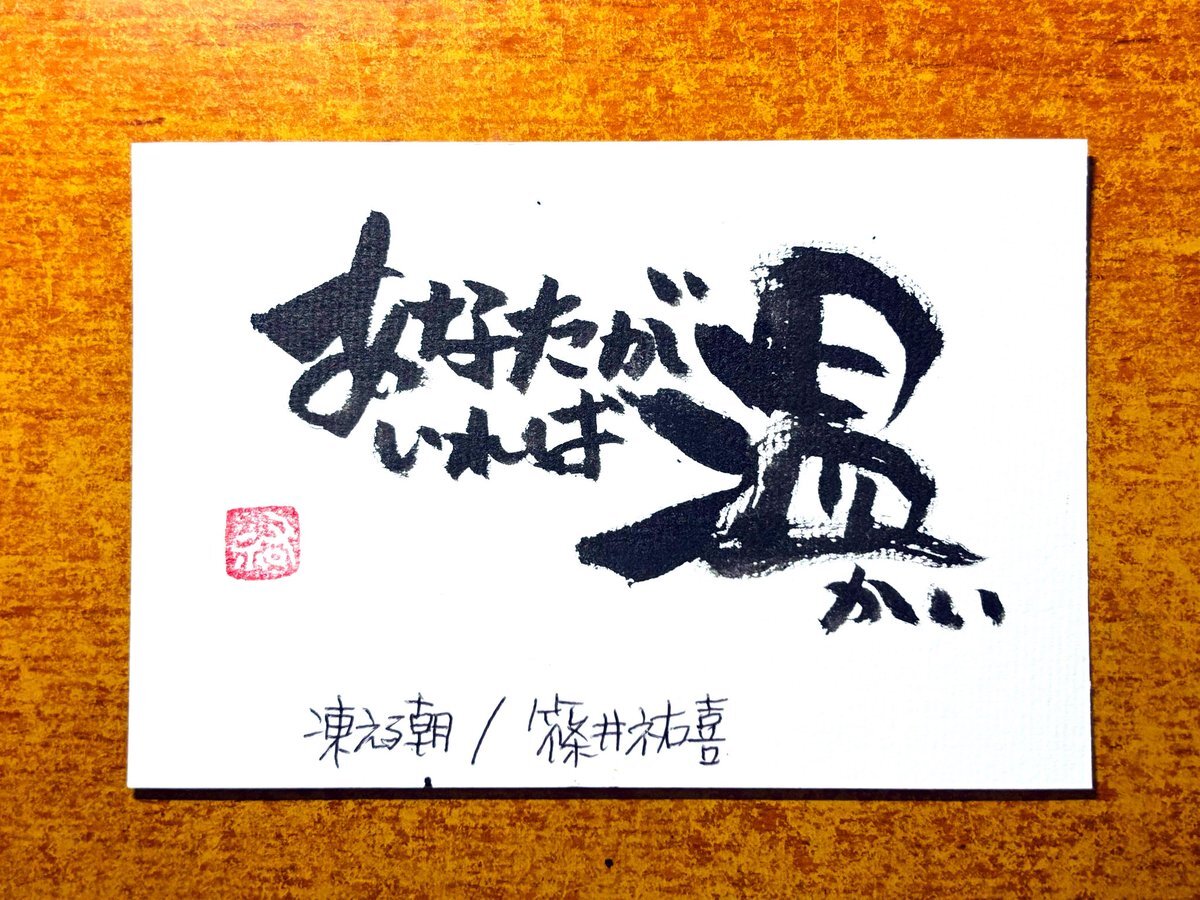 あなたが
いれば
温かい
凍える朝 / 篠井祐喜